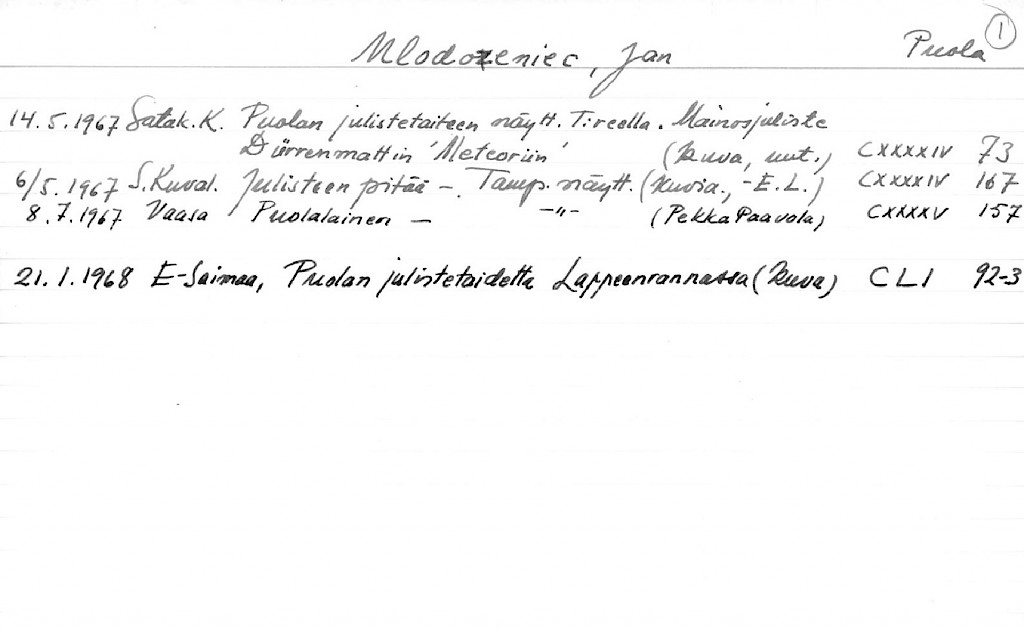 Mlodozeniec, Jan Puola 1
14.5.1967 Satak.K. Puolan julistetaiteen näytt. Treella. Mainosjuliste
Dürrenmattin 'Meteoriin' (kuva, uut.) CXXXXIV 73
6/5.1967 S.Kuval. Julisteen pitää – . Tamp. näytt. (kuvia., -E.L.) CXXXXIV 167
8.7.1967 Vaasa Puolalainen – -"- (Pekka Paavola) CXXXXV 157
21.1.1968 E-Saimaa, Puolan julistetaidetta Lappeenrannassa (kuva) CLI 92-3